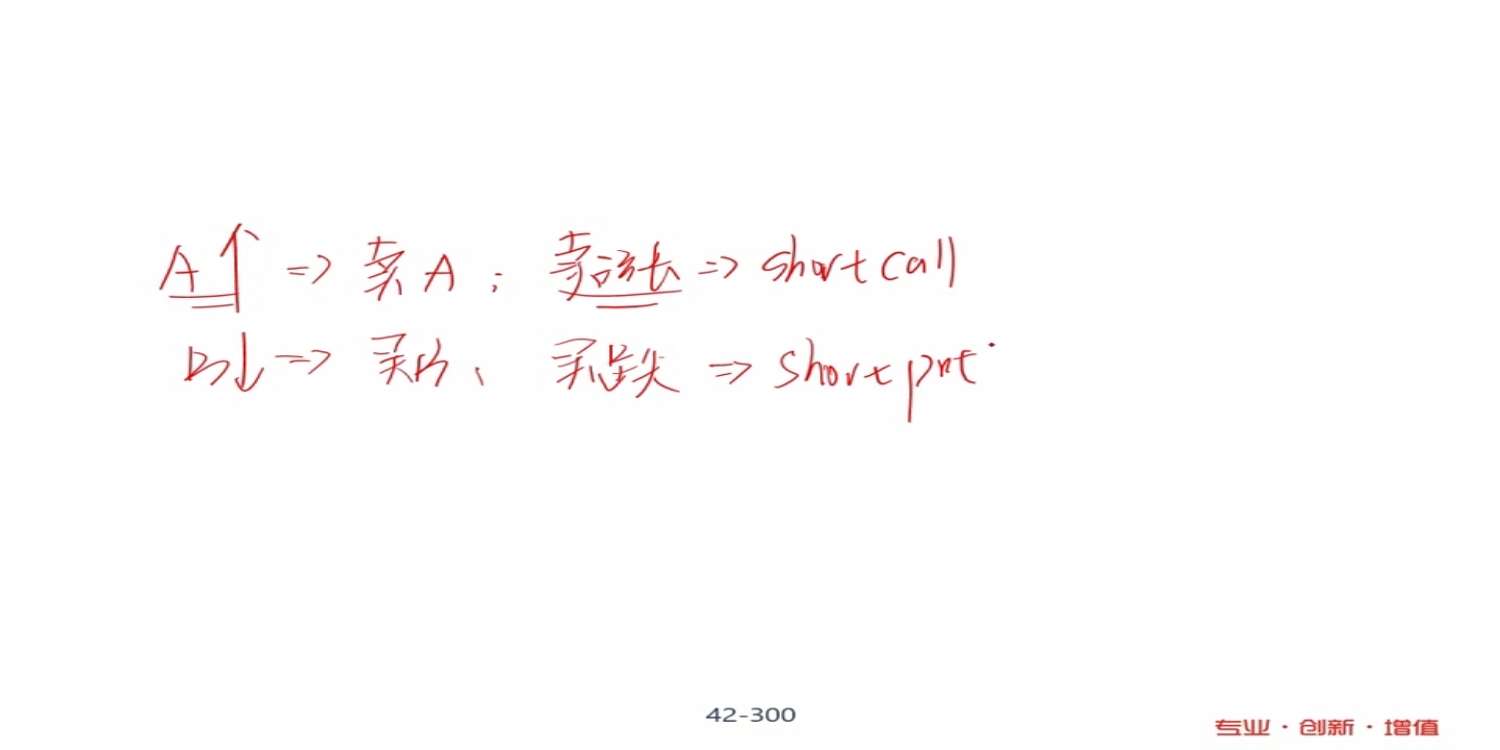 A↑ => 卖A; 卖涨 => short call
B↓ => 买B、买跌 => short put.
42-300
专业·创新·增值